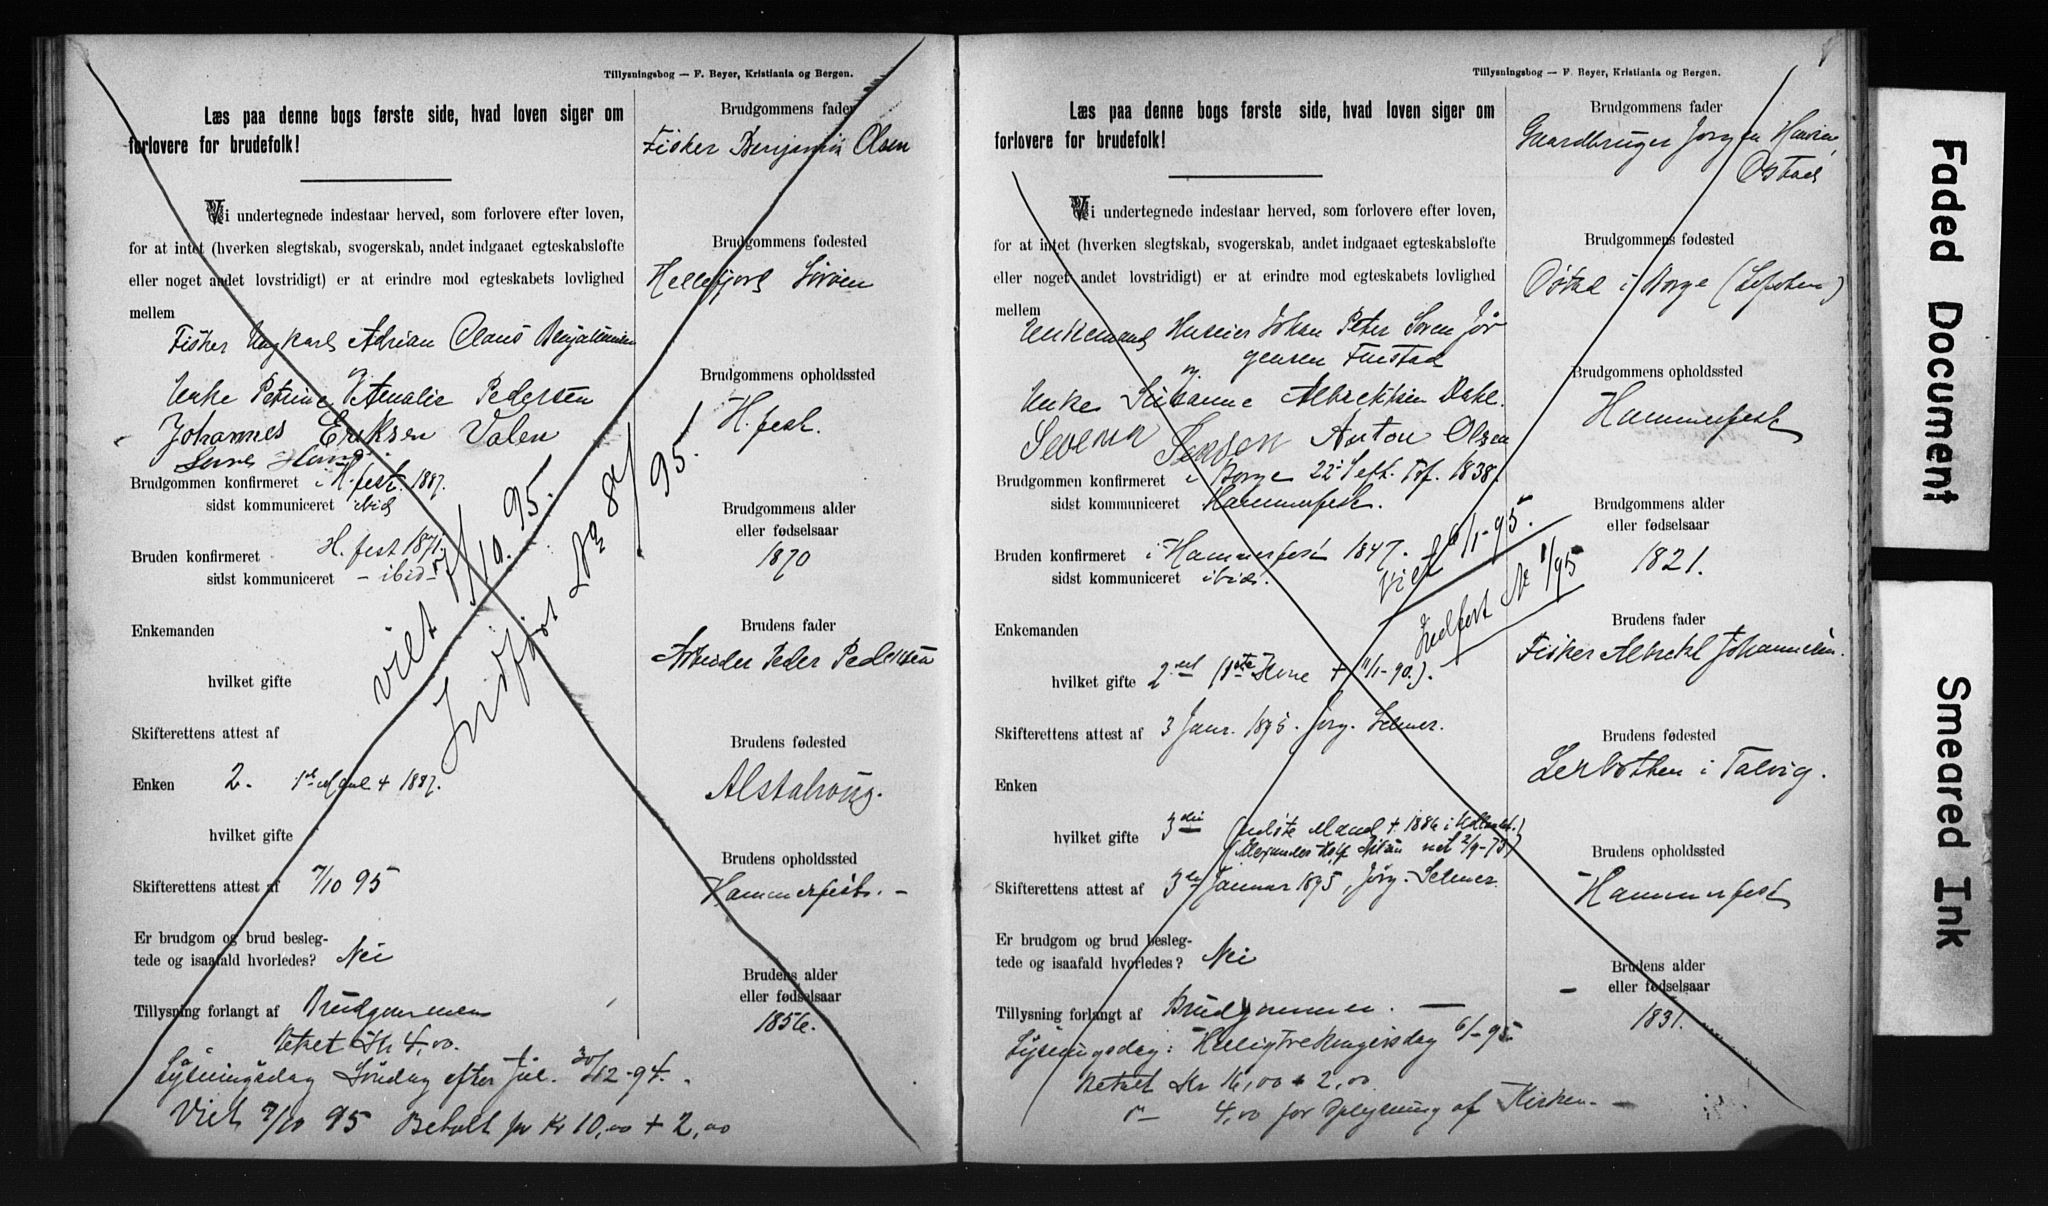 Tillysningsbog — F. Beyer, Kristiania og Bergen.
Læs paa denne bogs første side, hvad loven siger om
forlovere for brudefolk!
Vi undertegnede indestaar herved, som forlovere efter loven,
for at intet (hverken slegtskab, svogerskab, andet indgaaet egteskabsløfte
eller noget andet lovstridigt) er at erindre mod egteskabets lovlighed
mellem
Fisker Ungkarl Adrian Olaus Benjaminsen
og
Enke Petrine Amalie Pedersen
Johannes Eriksen Valen
Brudgommen konfirmeret i H.fest. 1887.
sidst kommuniceret ibid
Bruden konfirmeret H. fest 1871
sidst kommuniceret - ibid -
Enkemanden
hvilket gifte
Skifterettens attest af
Enken 2. 1ste Mand + 1887.
hvilket gifte
Skifterettens attest af 7/10 95
Er brudgom og brud besleg-
tede og isaafald hvorledes? Nei
Tillysning forlangt af Brudgommen
Betalt Kr 4,00.
Lysningsdag Søndag efter Jul. 30/12-94.
Viet 7/10 95 Betalt for Kr 10,00 + 2,00
viet 7/10. 95.
Indført No 84/95.
Brudgommens fader
Fisker Benjamin Olsen
Brudgommens fødested
Hellefjord Sørøen
Brudgommens opholdssted
H.fest.
Brudgommens alder
eller fødselsaar
1870
Brudens fader
Arbeider Peder Pedersen
Brudens fødested
Alstahoug.
Brudens opholdssted
Hammerfest. -
Brudens alder
eller fødselsaar
1856.
Tillysningsbog — F. Beyer, Kristiania og Bergen.
Læs paa denne bogs første side, hvad loven siger om
forlovere for brudefolk!
Vi undertegnede indestaar herved, som forlovere efter loven,
for at intet (hverken slegtskab, svogerskab, andet indgaaet egteskabsløfte
eller noget andet lovstridigt) er at erindre mod egteskabets lovlighed
mellem
Enkemand Huseier Johan Peter Søren Jør
gensen Finstad
og
Enke Susanne Albrektsen Dahl.
Severin Jensen Anton Olsen
Brudgommen konfirmeret i Borge 22 Sept. 1838.
sidst kommuniceret Hammerfest.
Bruden konfirmeret i Hammerfest 1847.
sidst kommuniceret ibid.
Enkemanden
hvilket gifte 2det (1ste Kone + 11/1-90.).
Skifterettens attest af 3 Janr. 1895. Jørg. Selmer.
Enken
hvilket gifte 3die (sidste Mand + 1886 i
Skifterettens attest af 3de Januar 1895, Jørg. Selmer.
Er brudgom og brud besleg-
tede og isaafald hvorledes? Nei
Tillysning forlangt af Brudgommen. —
Lysningsdag: Helligtrekongersdag 6/1-95.
Betalt Kr 16,00 + 2,00
4,00 for Oplysning af Kirken. -
Viet 6/1-95.
Indført No 1/95
Brudgommens fader
Gaardbruger Jørgen
Brudgommens fødested
i Borge (Lofoten)
Brudgommens opholdssted
Hammerfest
Brudgommens alder
eller fødselsaar
1821.
Brudens fader
Fisker Albrekt Johannesen.
Brudens fødested
Lerbotten i Talvig.
Brudens opholdssted
Hammerfest
Brudens alder
eller fødselsaar
1831.
Faded Document
Smeared Ink